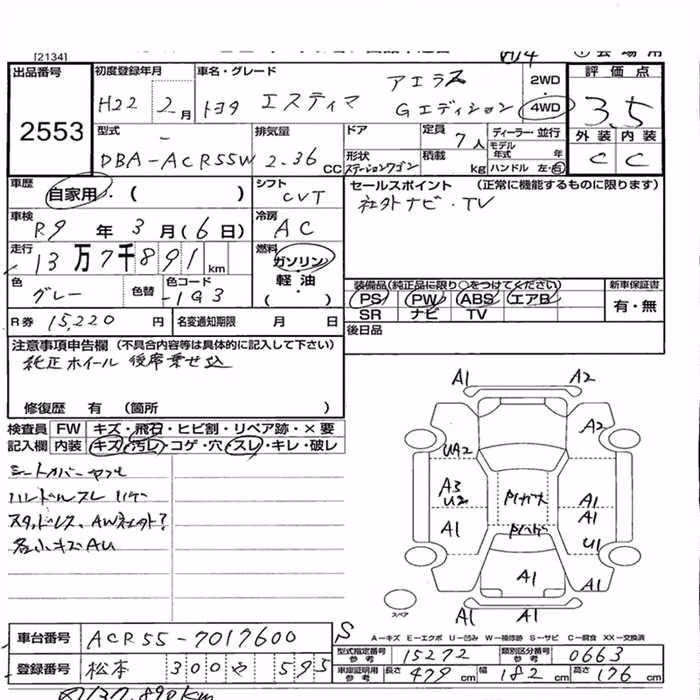 [2134]
出品番号 初度登録年月 車名・グレード 評価点
2553
H22 2月 トヨタ エスティマ アエラス Gエディション 2WD 4WD 3.5
外装 内装
C C
型式 排気量 ドア 定員 7人 ディーラー・並行
DBA-ACR55W 2.36 CC 形状 ステーションワゴン 積載 kg モデル年式 年 ハンドル 左・右
車歴 自家用・( ) シフト CVT セールスポイント (正常に機能するものに限ります)
社外ナビ・TV
車検 R9年 3月(6日) 冷房 AC
走行 13万7千891km 燃料 ガソリン・軽油・( )
色 グレー 色替 色コード -1G3
装備品(純正品に限り○をつけてください) 新車保証書
PS PW ABS エアB 有・無
SR ナビ TV
R券 15,220円 名変通知期限 月 日
後日品
注意事項申告欄 (不具合内容等は具体的に記入して下さい)
純正ホイール 後席乗せ込
修復歴 有 (箇所 )
検査員記入欄 FW キズ・飛石・ヒビ割・リペア跡・×要
内装 キズ・汚レ・コゲ・穴・スレ・キレ・破レ
ハンドルスレ
スタッドレス、AW社外?
各小キズAU
A1 A2
A2
UA2
A3
U2
A1
A1
A1
U1
A1
A1
A1 A1
スペア
A-キズ E-エクボ U-凹み W-補修跡 S-サビ C-腐食 XX-交換済
車台番号 ACR55-7017600
S
型式指定番号 参考 15272 類別区分番号 参考 0663
登録番号 松本 300 や 595
車庫証明用 参考 長さ 479cm 幅 182cm 高さ 176cm
137,890km